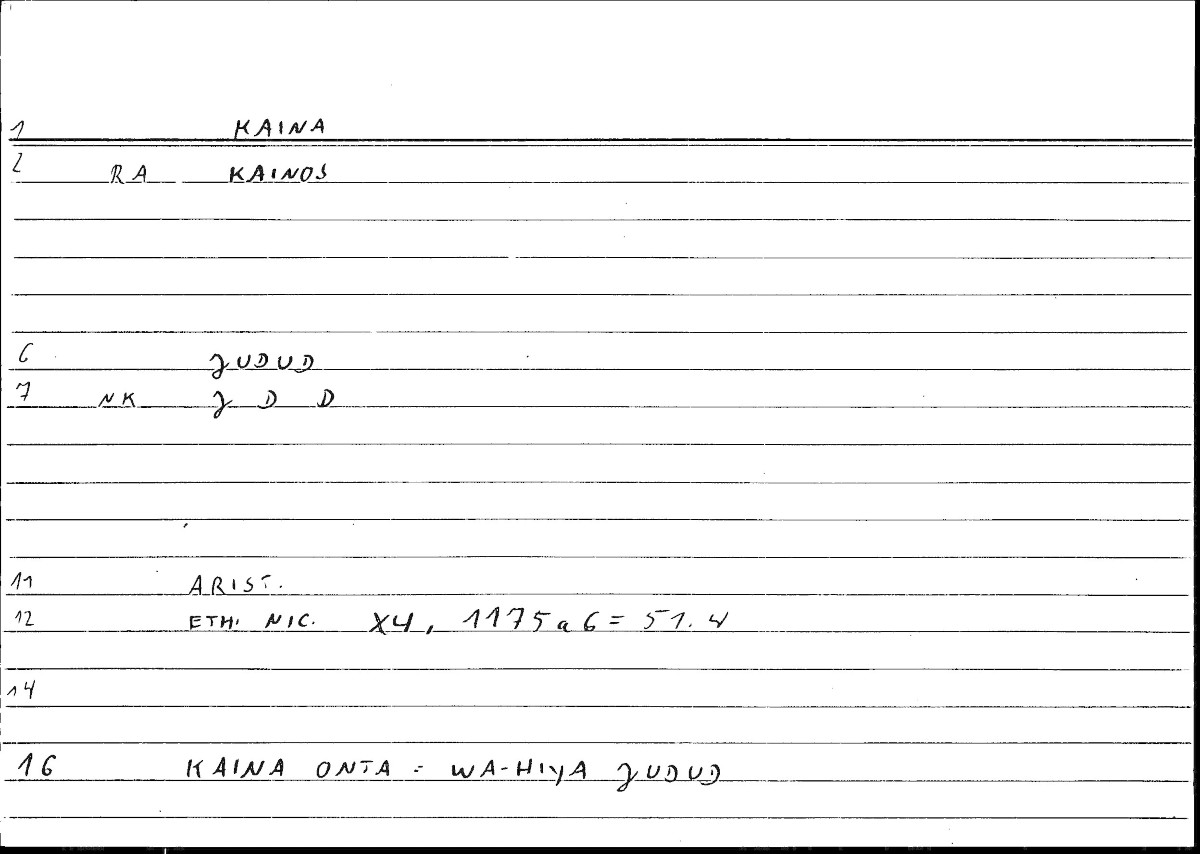 1 KAINA
2 RA KAINOS
6 ƷUDUD
7 NK Ʒ D D
11 ARIST.
12 ETH. NIC. X4, 1175a6 = 51.4
14
16 KAINA ONTA = WA-HIYA ƷUDUD